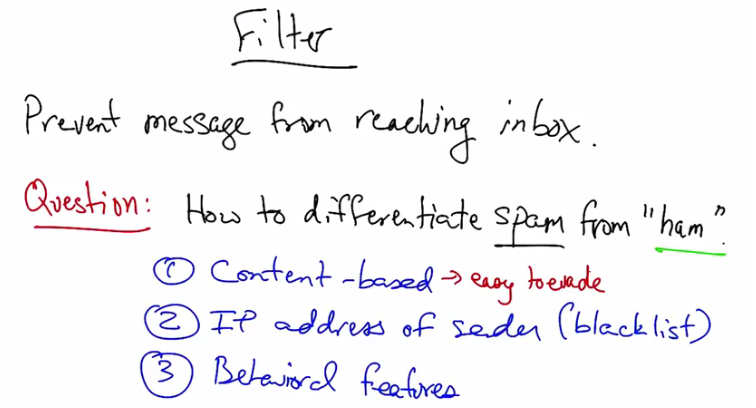 Filter
Prevent message from reaching inbox.
Question: How to differentiate spam from "ham".
① Content-based → easy to evade
② IP address of sender (blacklist)
③ Behavioral features